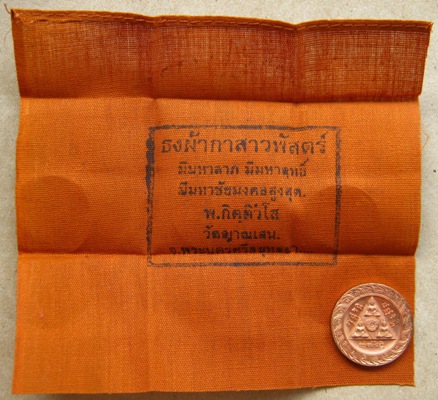 ธงผ้ากาสาวพัสตร์
มีมหาลาภ มีมหาฤทธิ์
มีมหาชัยมงคลสูงสุด.
พ.กิตติวํโส
วัดญาณเสน.
จ.พระนครศรีอยุธยา.